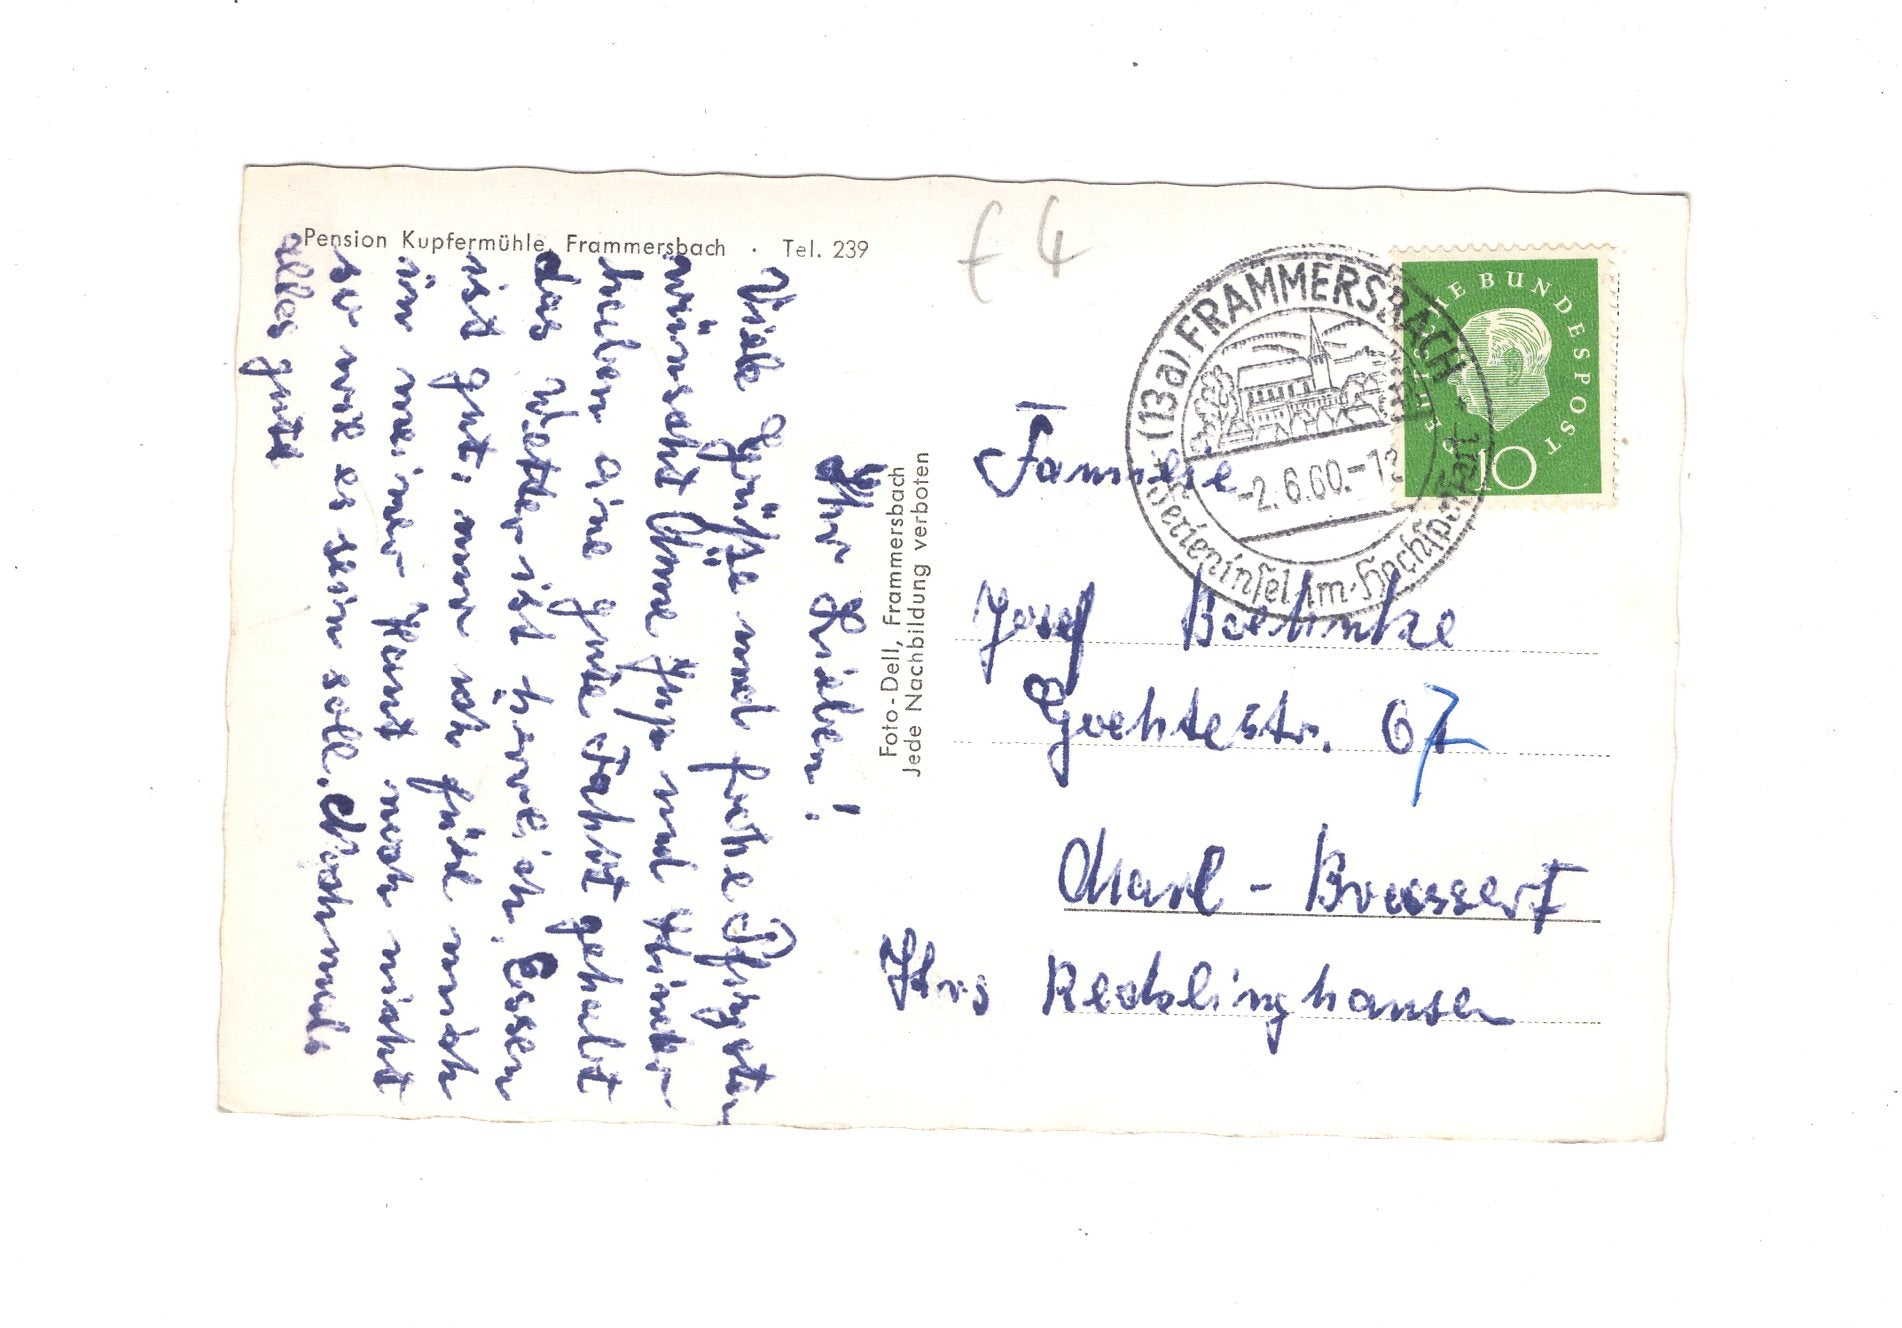 Pension Kupfermühle, Frammersbach · Tel. 239
Ihr Lieben!
Viele Grüße und frohe Pfingsten
wünscht Änne Jupp und Kinder
haben eine gute Fahrt gehabt
das Wetter ist herrlich. Essen
ist gut. nur ich fühl mich
in meiner Haut noch nicht
so wie es sein soll. Nochmals
alles gute
Foto-Dell, Frammersbach
Jede Nachbildung verboten
£4
(13a) FRAMMERSBACH
-2.6.60.-12
Ferieninsel im Hochspessart
DEUTSCHE BUNDESPOST
10
Familie
Josef
Goethestr. 67
Marl - Brassert
Krs Recklinghausen